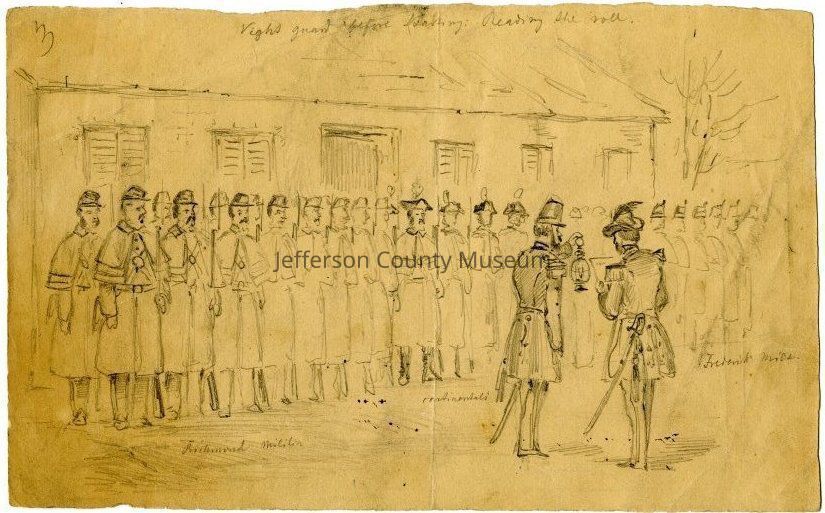 Night guard before Starting: Reading the roll.
Jefferson County Museum
Frederick
continentals
Richmond Militia